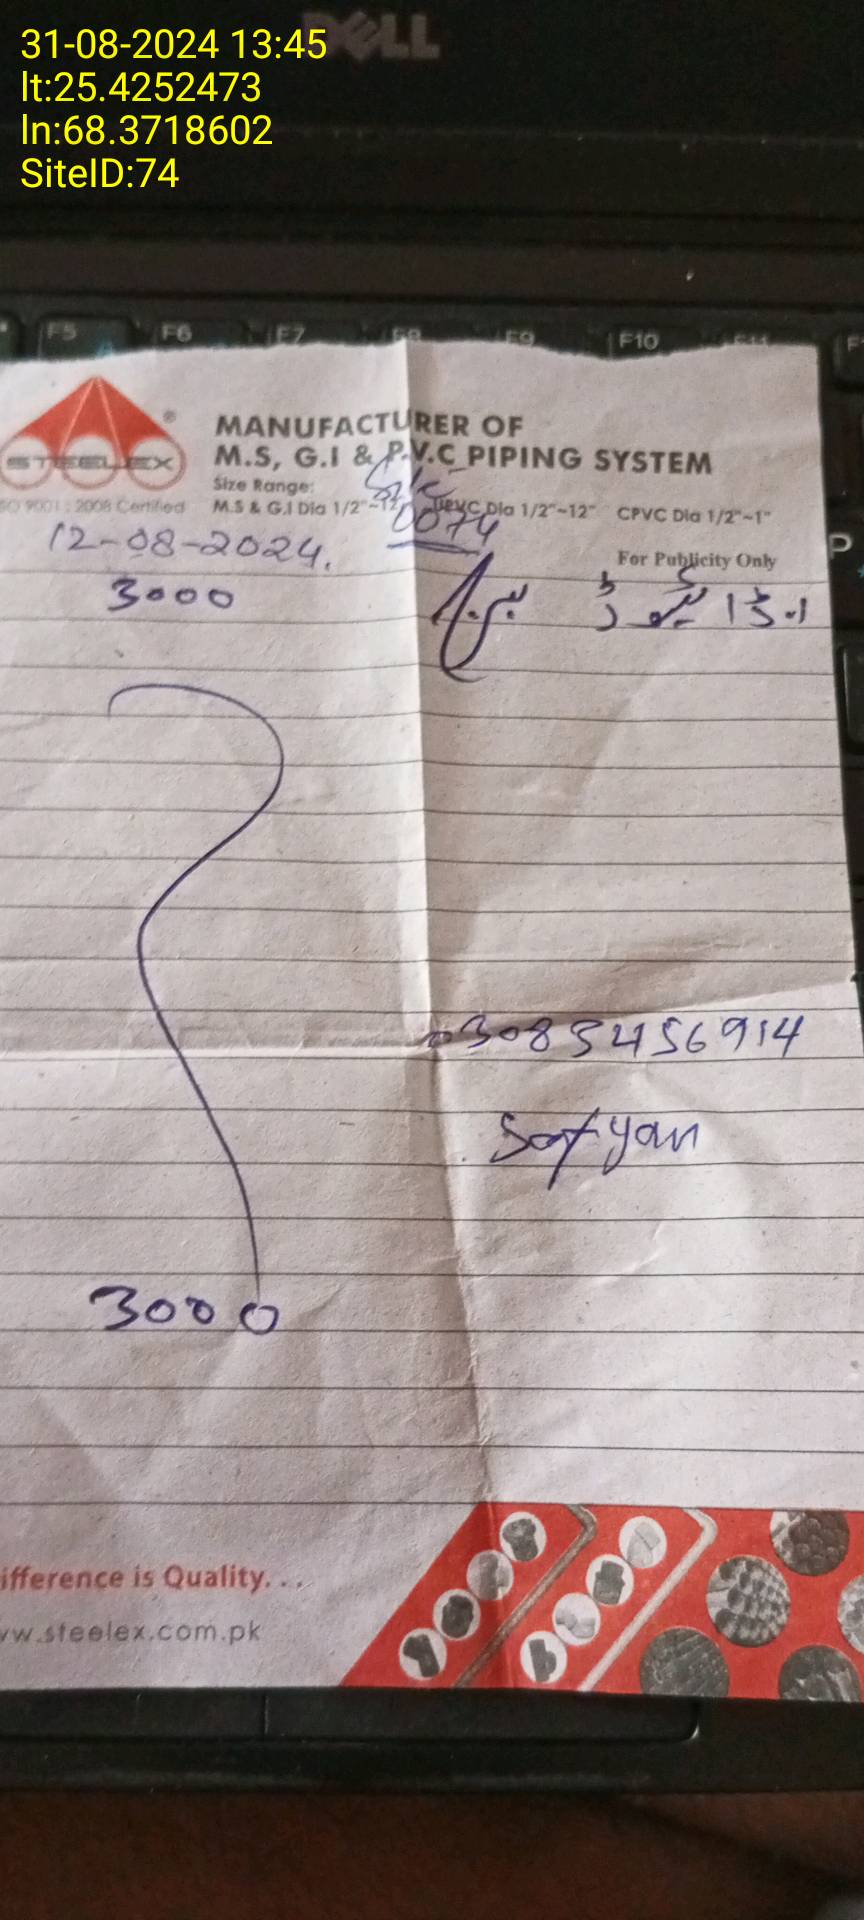 31-08-2024 13:45
lt:25.4252473
ln:68.3718602
SiteID:74
DELL
F5 F6 F7 F8 F9 F10 F11
P
STEELEX ®
MANUFACTURER OF
M.S, G.I & P.V.C PIPING SYSTEM
Size Range:
ISO 9001 : 2008 Certified M.S & G.I Dia 1/2"~12" UPVC Dia 1/2"~12" CPVC Dia 1/2"~1"
Site
0074
12-08-2024.
For Publicity Only
3000
03085456914
Sofyan
3000
ifference is Quality. . .
ww.steelex.com.pk